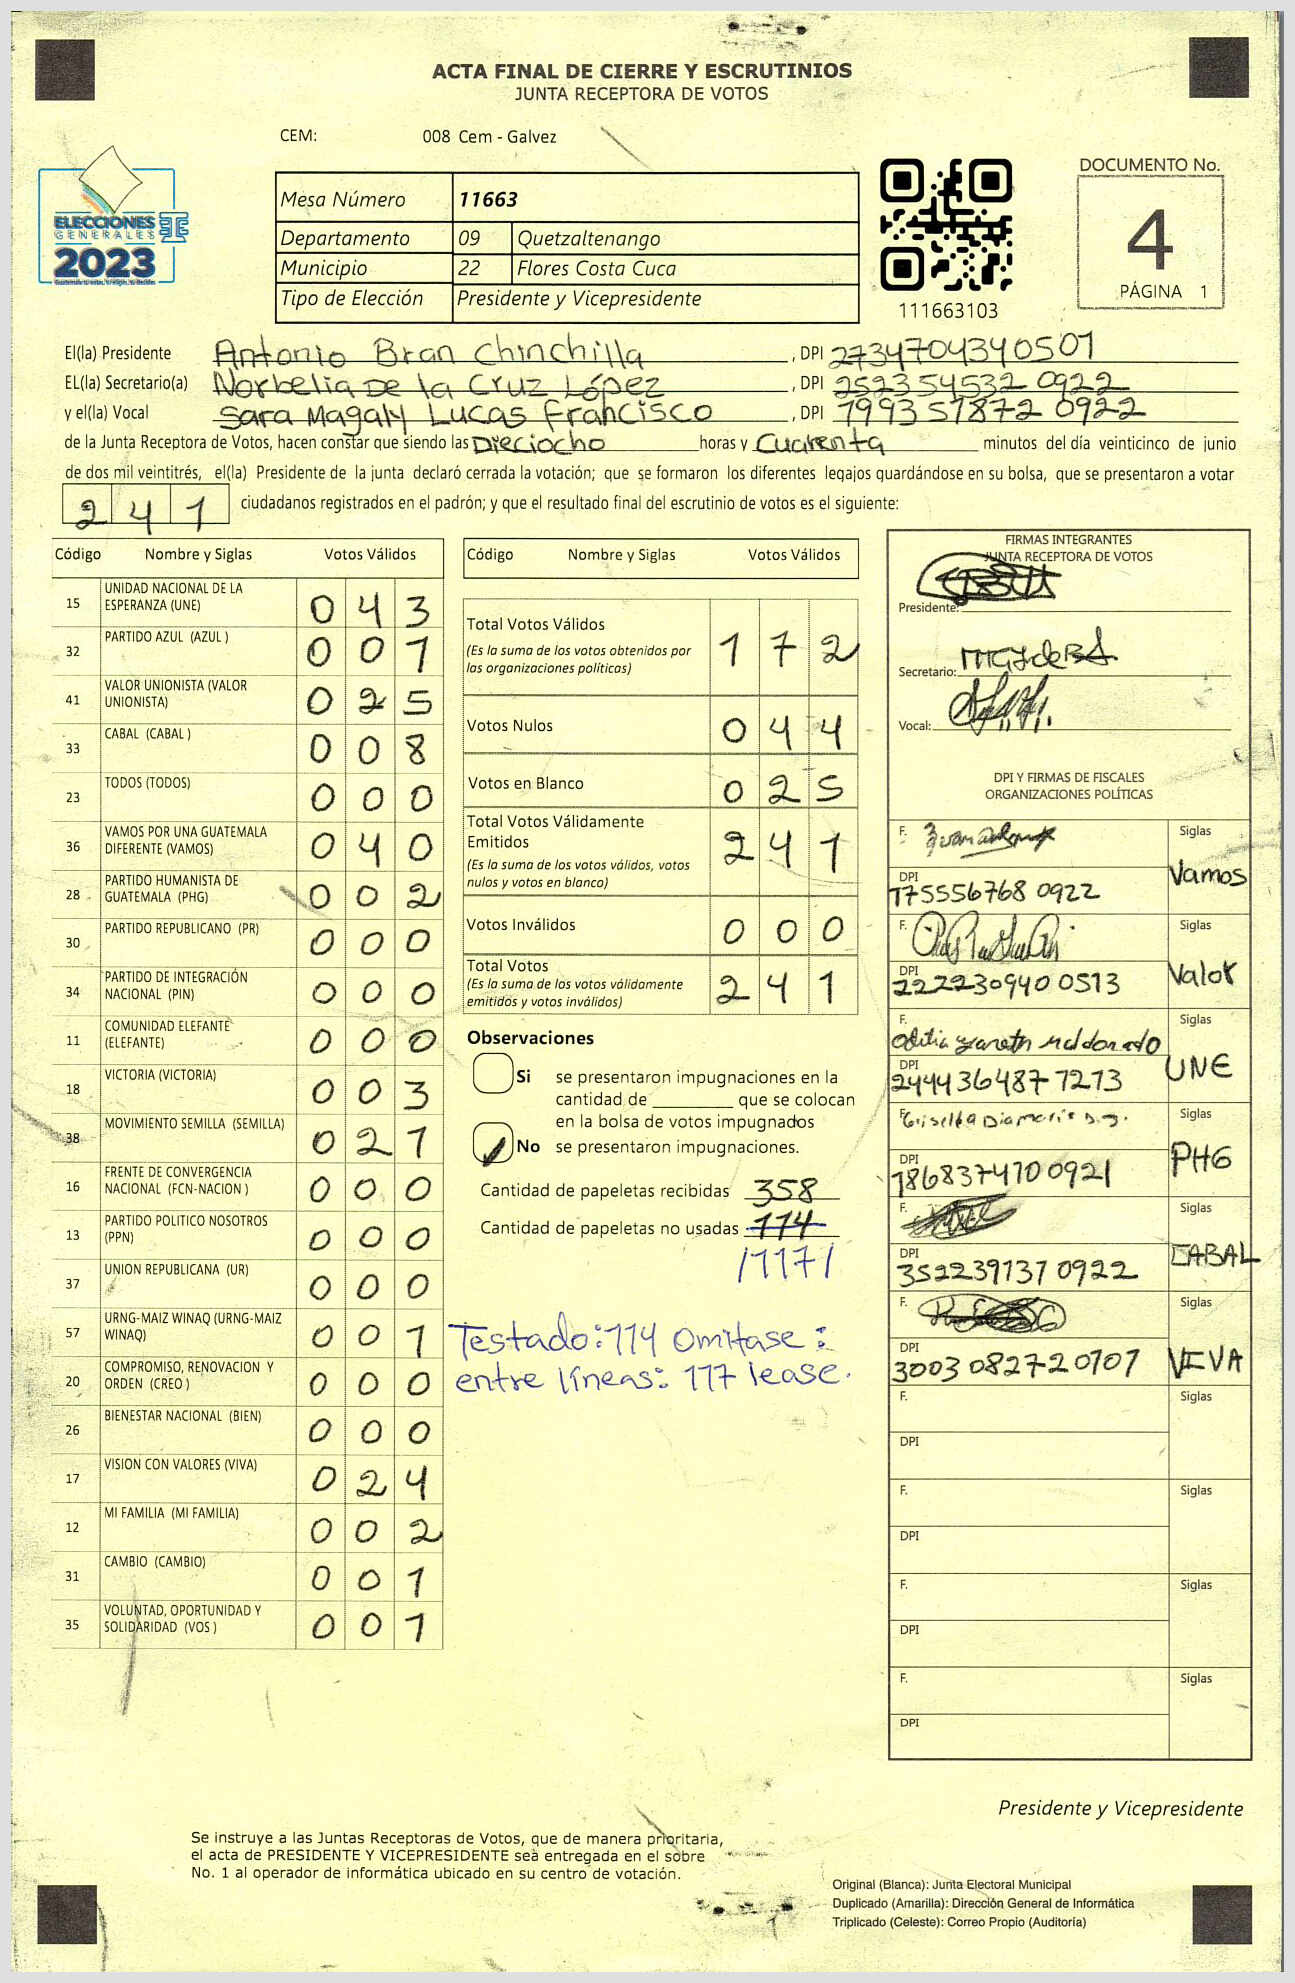 ACTA FINAL DE CIERRE Y ESCRUTINIOS
JUNTA RECEPTORA DE VOTOS
CEM: 008 Cem - Galvez
ELECCIONES
GENERALES
2023
Mesa Número 11663
Departamento 09 Quetzaltenango
Municipio 22 Flores Costa Cuca
Tipo de Elección Presidente y Vicepresidente
111663103
DOCUMENTO No.
4
PÁGINA 1
El(la) Presidente Antonio Bran Chinchilla, DPI 2734704340501
EL(la) Secretario(a) Norbelia De la Cruz López, DPI 252354532 0922
y el(la) Vocal Sara Magaly Lucas Francisco, DPI 199351872 0922
de la Junta Receptora de Votos, hacen constar que siendo las Dieciocho horas y Cuarenta minutos del día veinticinco de junio
de dos mil veintitrés, el(la) Presidente de la junta declaró cerrada la votación; que se formaron los diferentes legajos quardándose en su bolsa, que se presentaron a votar
241 ciudadanos registrados en el padrón; y que el resultado final del escrutinio de votos es el siguiente:
Código Nombre y Siglas Votos Válidos
15 UNIDAD NACIONAL DE LA ESPERANZA (UNE) 043
32 PARTIDO AZUL (AZUL ) 001
41 VALOR UNIONISTA (VALOR UNIONISTA) 025
33 CABAL (CABAL ) 008
23 TODOS (TODOS) 000
36 VAMOS POR UNA GUATEMALA DIFERENTE (VAMOS) 040
28 PARTIDO HUMANISTA DE GUATEMALA (PHG) 002
30 PARTIDO REPUBLICANO (PR) 000
34 PARTIDO DE INTEGRACIÓN NACIONAL (PIN) 000
11 COMUNIDAD ELEFANTE (ELEFANTE) 000
18 VICTORIA (VICTORIA) 003
38 MOVIMIENTO SEMILLA (SEMILLA) 021
16 FRENTE DE CONVERGENCIA NACIONAL (FCN-NACION ) 000
13 PARTIDO POLITICO NOSOTROS (PPN) 000
37 UNION REPUBLICANA (UR) 000
57 URNG-MAIZ WINAQ (URNG-MAIZ WINAQ) 001
20 COMPROMISO, RENOVACION Y ORDEN (CREO ) 000
26 BIENESTAR NACIONAL (BIEN) 000
17 VISION CON VALORES (VIVA) 024
12 MI FAMILIA (MI FAMILIA) 002
31 CAMBIO (CAMBIO) 001
35 VOLUNTAD, OPORTUNIDAD Y SOLIDARIDAD (VOS ) 001
Código Nombre y Siglas Votos Válidos
Total Votos Válidos 172
(Es la suma de los votos obtenidos por
las organizaciones políticas)
Votos Nulos 044
Votos en Blanco 025
Total Votos Válidamente
Emitidos 241
(Es la suma de los votos válidos, votos
nulos y votos en blanco)
Votos Inválidos 000
Total Votos 241
(Es la suma de los votos válidamente
emitidos y votos inválidos)
Observaciones
Si se presentaron impugnaciones en la
cantidad de ________ que se colocan
en la bolsa de votos impugnados
No se presentaron impugnaciones.
Cantidad de papeletas recibidas 358
Cantidad de papeletas no usadas 114
/117/
Testado: 114 Omitase:
entre líneas: 117 lease.
FIRMAS INTEGRANTES
JUNTA RECEPTORA DE VOTOS
Presidente:
Secretario:
Vocal:
DPI Y FIRMAS DE FISCALES
ORGANIZACIONES POLÍTICAS
F. Siglas
DPI 175556768 0922 Vamos
F. Siglas
DPI 222230940 0513 Valor
F. Siglas
DPI 2444364877213 UNE
F. Siglas
DPI 1868374700921 PHG
F. Siglas
DPI 352239137 0922 CABAL
F. Siglas
DPI 3003 082720707 VIVA
F. Siglas
DPI
F. Siglas
DPI
F. Siglas
DPI
F. Siglas
DPI
Presidente y Vicepresidente
Se instruye a las Juntas Receptoras de Votos, que de manera prioritaria,
el acta de PRESIDENTE Y VICEPRESIDENTE sea entregada en el sobre
No. 1 al operador de informática ubicado en su centro de votación.
Original (Blanca): Junta Electoral Municipal
Duplicado (Amarilla): Dirección General de Informática
Triplicado (Celeste): Correo Propio (Auditoría)